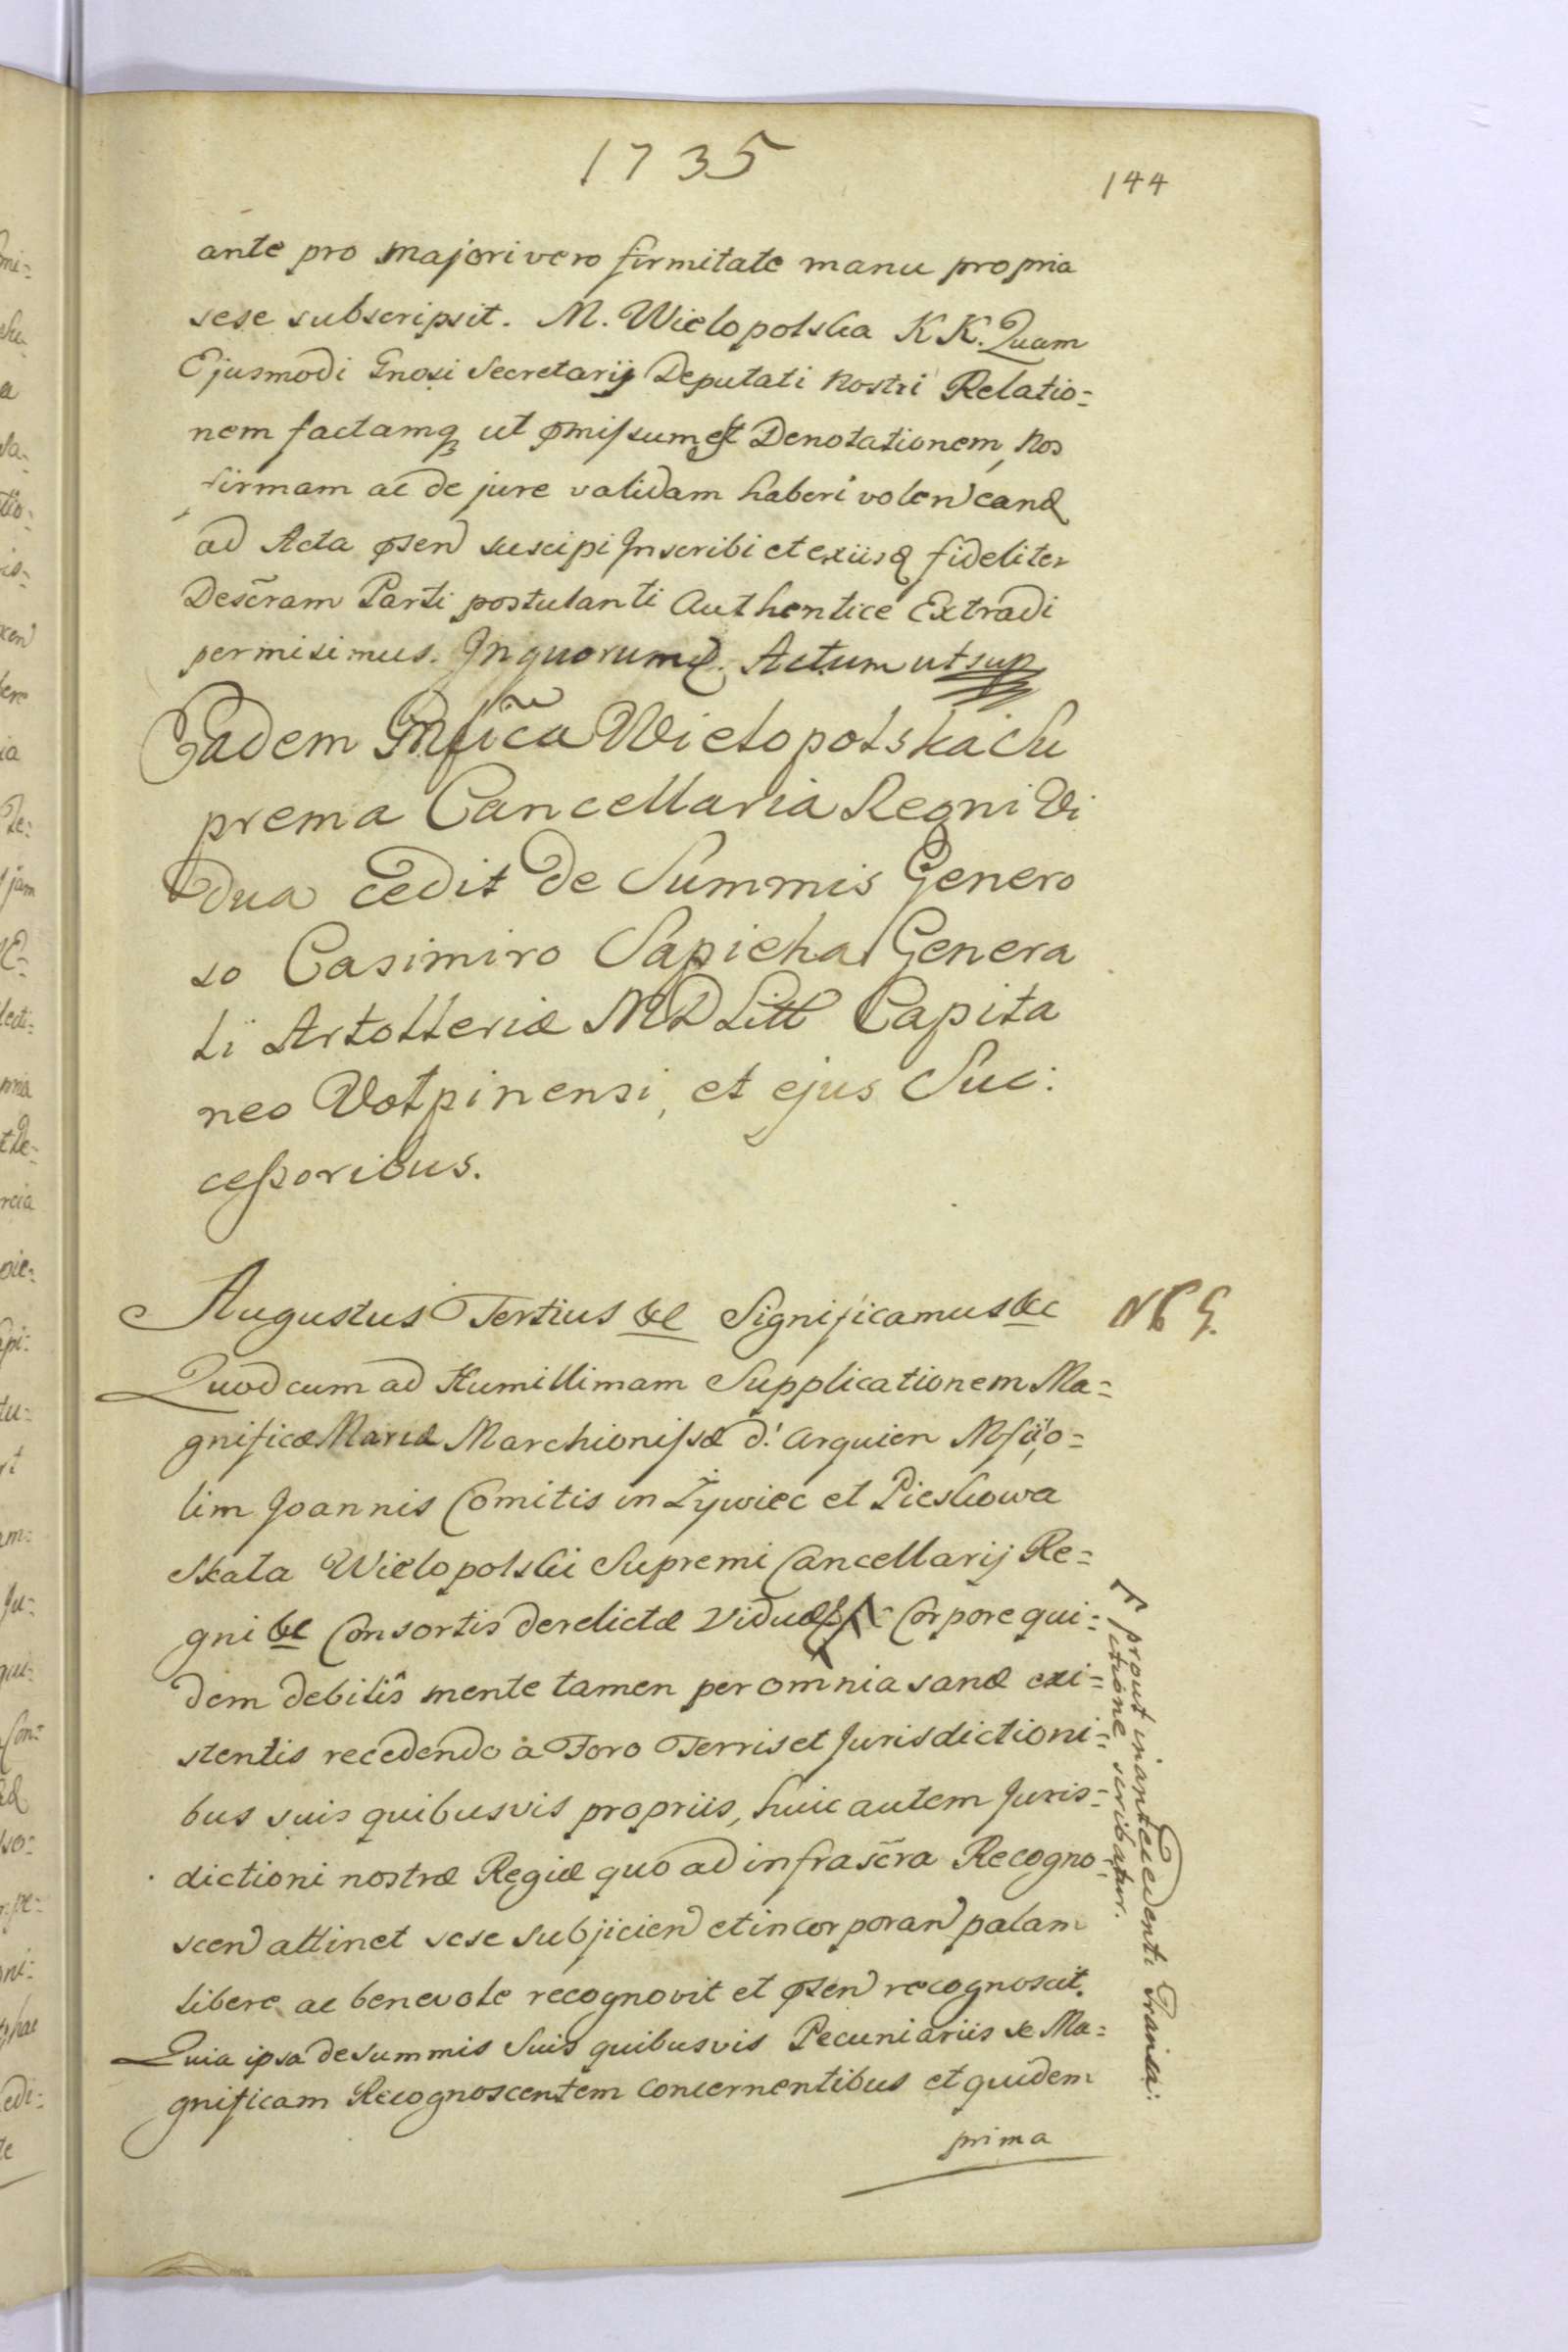 1735
144
ante pro majori vero firmitate manu propria
sese subscripsit. M. Wielopolska KK. Quam
Ejusmodi Gnosi Secretarij Deputati nostri Relatio=
nem factamq ut pmissum est Denotationem, Nos
firmam ac de jure validam haberi volen eanq
ad Acta psen suscipi Inscribi et ex iisq fideliter
Descram Parti postulanti Authentice Extradi
permisimus. In quorum &. Actum ut sup
Eadem Mfica Wielopolska Su
prema Cancellaria Regni Vi
dua cedit de Summis Genero
so Casimiro Sapieha Genera
li Artolleriæ MD Litt Capita
neo Wołpinensi, et ejus Suc:
cessoribus.
Augustus Tertius &c Significamus &c
Quod cum ad Humillimam Supplicationem Ma=
gnificæ Mariæ Marchionissæ d'. Arquien Mfci, o=
lim Joannis Comitis in Żywiec et Pieskowa
Skała Wielopolski Supremi Cancellarij Re=
gni &c Consortis derelictæ Viduæ Corpore qui=
dem debilis mente tamen per omnia sanæ exi=
stentis recedendo à Foro Terris et Jurisdictioni=
bus suis quibusvis propriis, huic autem Juris=
dictioni nostræ Regiæ quo ad infrascra Recogno=
scen attinet sese subjicien et incorporan palam
libere ac benevole recognovit et psen recognoscit.
Quia ipsa de summis Suis quibusvis Pecuniariis se Ma=
gnificam Recognoscentem concernentibus et quidem
prima
prout in antecedenti Transa:
ctione scribatur.